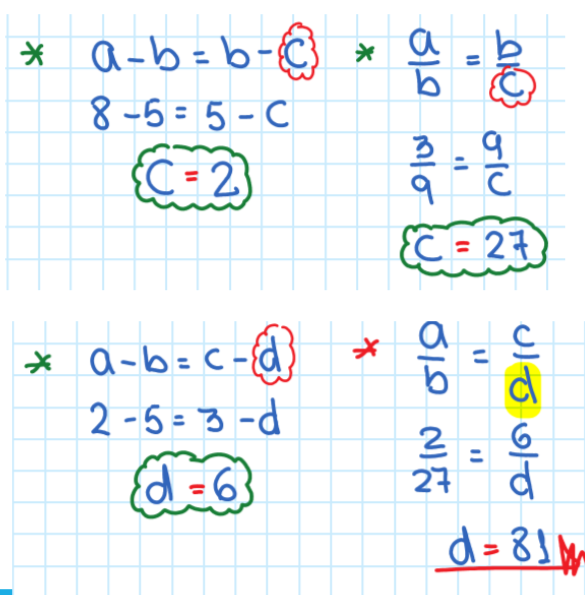 * a - b = b - c
8 - 5 = 5 - c
c = 2
* a/b = b/c
3/9 = 9/c
c = 27
* a - b = c - d
2 - 5 = 3 - d
d = 6
* a/b = c/d
2/27 = 6/d
d = 81